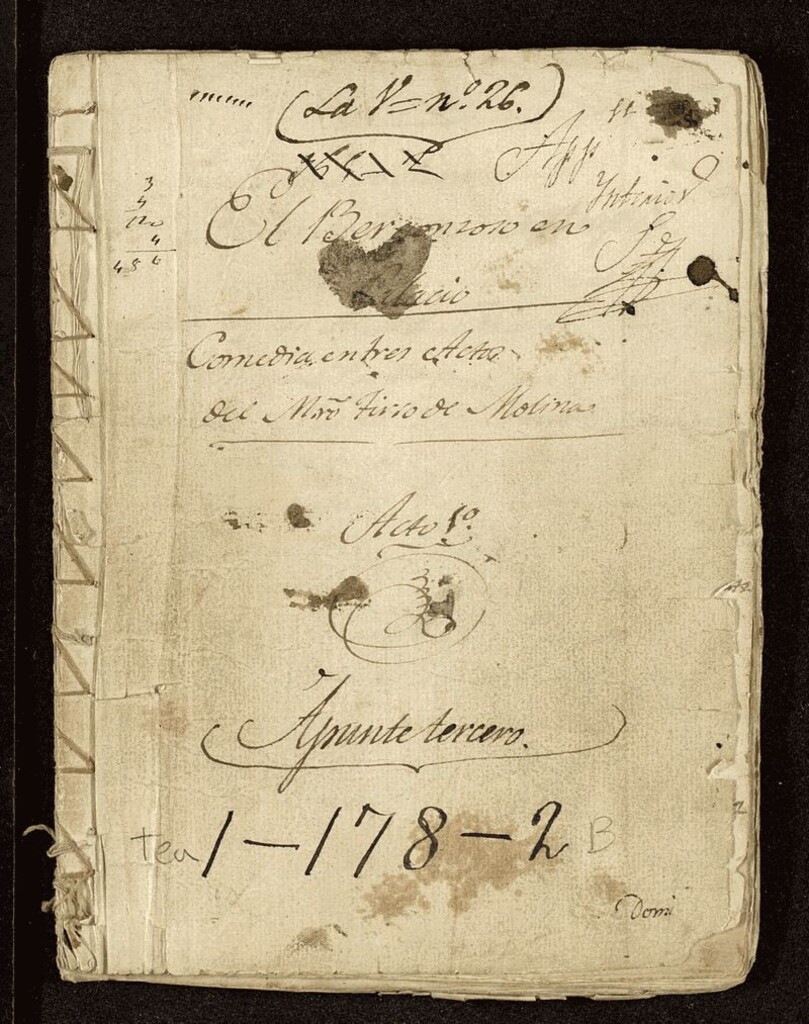 La V= nº. 26.
App
El Bergonzoso en
Palacio
Interior
Comedia, en tres Actos
del Mrõ Tirso de Molina
Acto 1º
Apunte tercero.
Tea 1-178-2 B
Domi
3
4
120
4
486